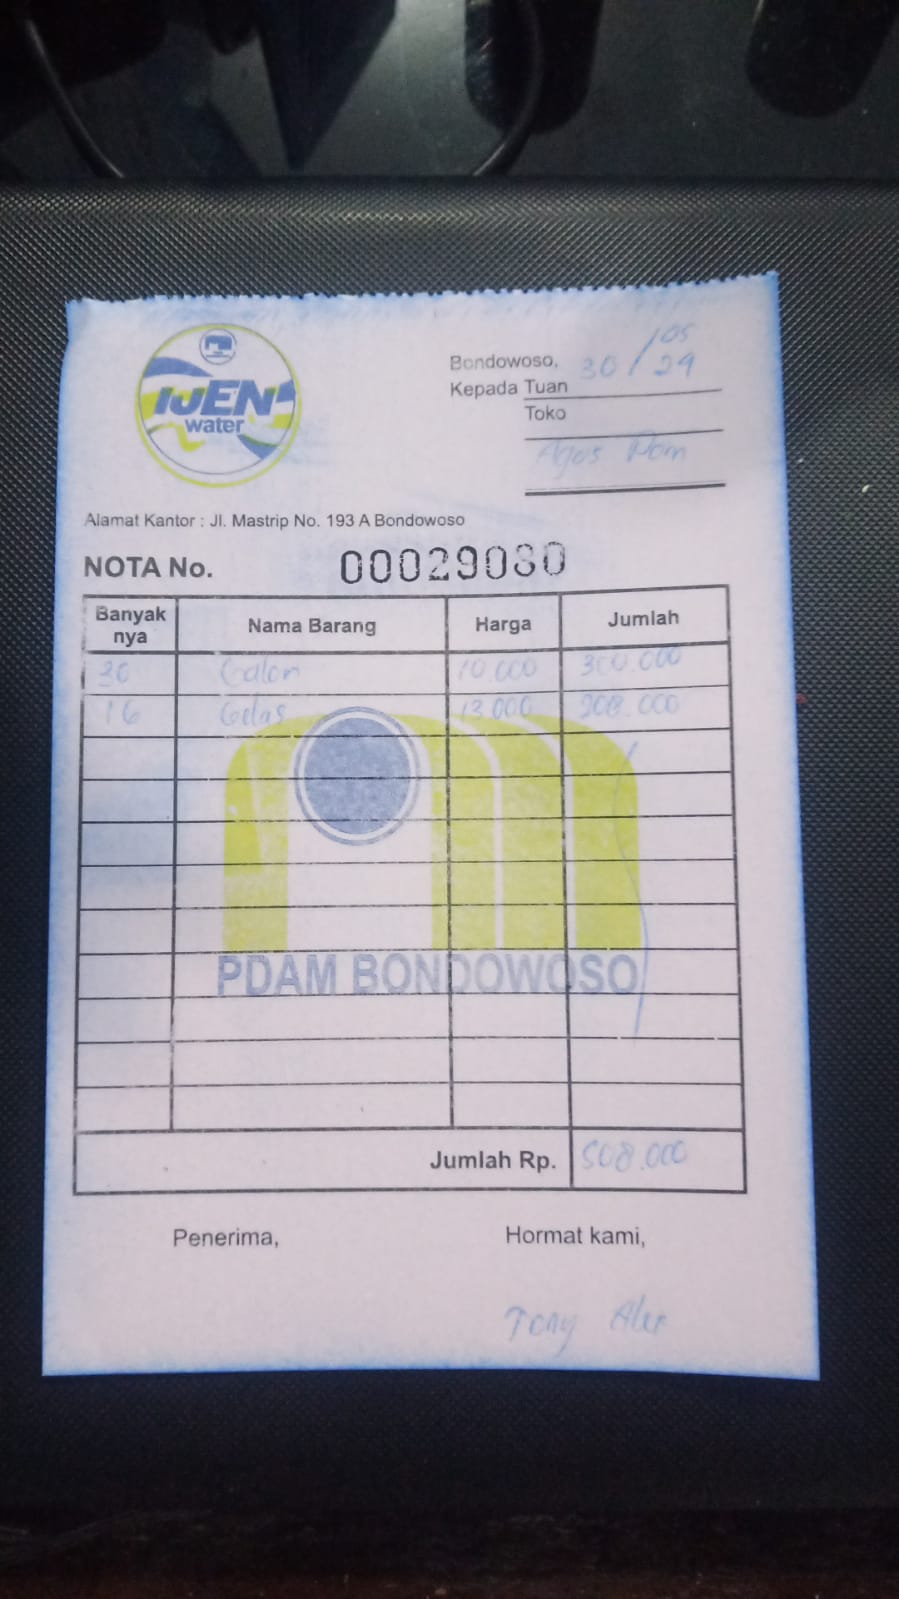 IJEN
water
Bondowoso, 30/05 24
Kepada Tuan
Toko
Agus Pam
Alamat Kantor : Jl. Mastrip No. 193 A Bondowoso
NOTA No. 00029080
Banyak nya Nama Barang Harga Jumlah
30 Galon 10.000 300.000
16 Gelas 13.000 208.000
PDAM BONDOWOSO
Jumlah Rp. 508.000
Penerima, Hormat kami,
Tony